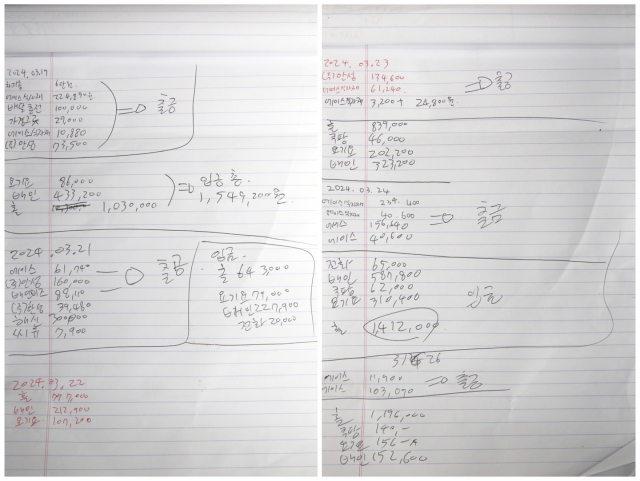 2024.03.19
6만원
에이스식자재 224,890원
배달충전 100,000
29,000
에이스식자재 10,880
(주)안성 73,500
출금
요기요 86,000
배민 433,200
홀 1,030,000
입금 총
1,549,200원
2024.03.21
에이스 61,740
(주)안성 160,000
88,110
39,460
300,000
씨유 7,900
출금
입금
홀 643,000
요기요 79,000
배민 227,900
전화 20,000
2024.03.22
홀 797,000
배민 212,900
요기요 107,200
2024.03.23
(주)안성 174,600
61,240
에이스식자재 3,200+ 24,800원
출금
홀 839,000
쿠팡 46,000
요기요 202,200
배민 323,200
2024.03.24
에이스식자재 259.400
40.600
에이스 156,640
에이스 40,600
출금
전화 65,000
배민 587,800
쿠팡 62,000
요기요 310,400
입금
홀 1,412,000
26
에이스 11,900
에이스 103,090
출금
홀 1,196,000
쿠팡 140,-
요기요 156-
배민 152,600